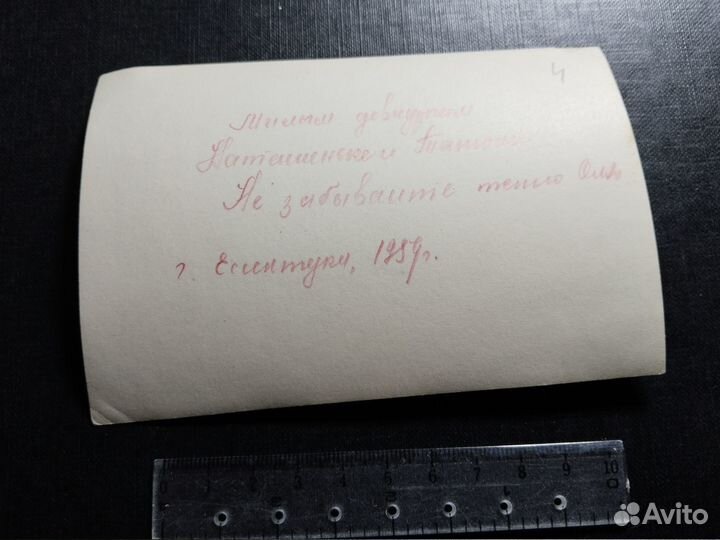 4
Милым девчушкам
Наташеньке и Танюше
Не забывайте тетю Олю
г. Ессентуки, 1959г.
1 2 3 4 5 6 7 8 9 10
Avito